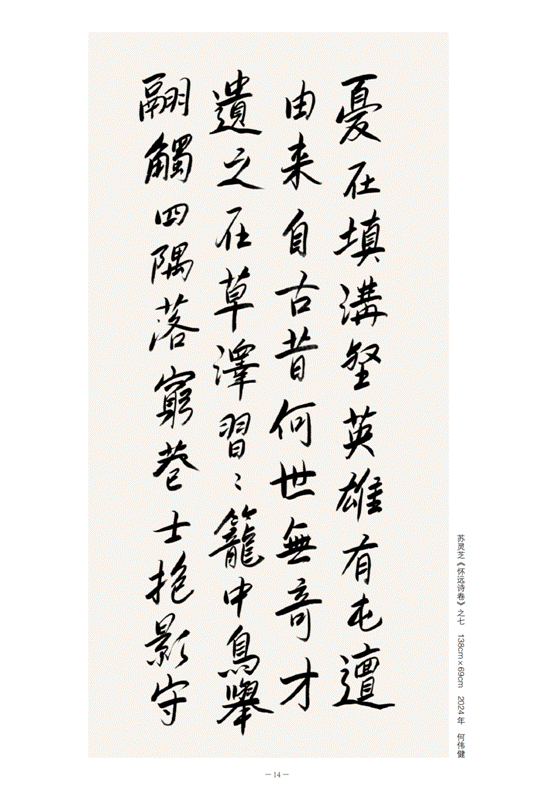 憂在填溝壑英雄有屯邅
由来自古昔何世無奇才
遺之在草澤習〻籠中鳥舉
翮觸四隅落窮巷士抱影守
苏灵芝《怀远诗卷》之七 138cm×69cm 2024年 何伟健
— 14 —